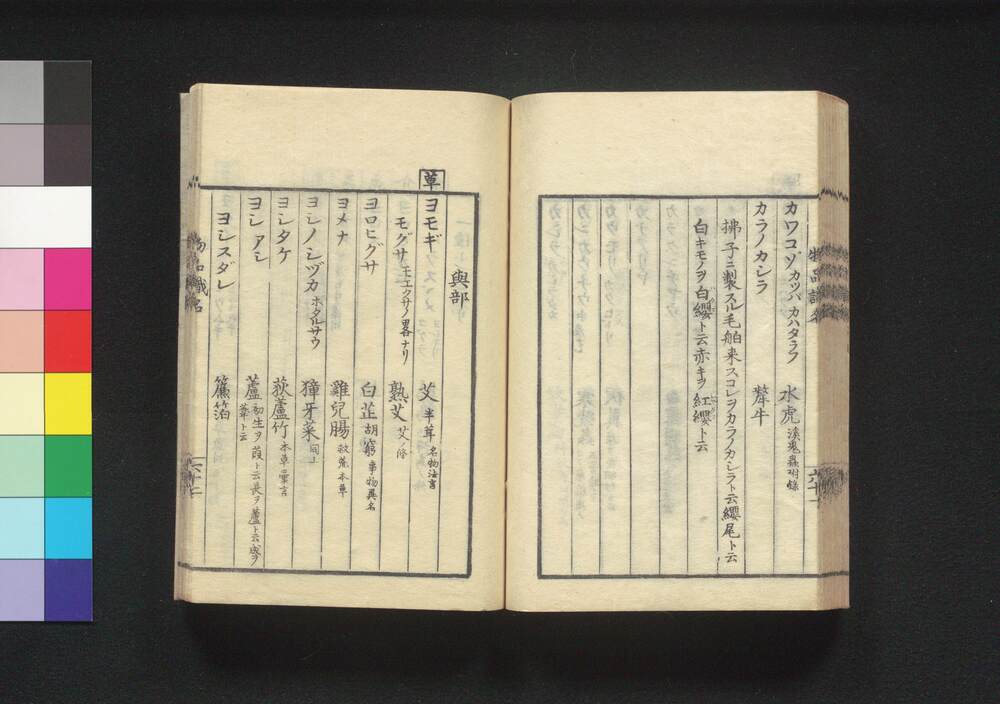 物品識名
カワコゾ カッパ カハタラフ 水虎 溪鬼蟲附録
カラノカシラ 犛牛
拂子ニ製スル毛舶来スコレヲカラノカシラト云纓尾ト云
白キモノヲ白纓ト云赤キヲ紅纓ト云
六十一
與部
草 ヨモギ 艾 半茸 名物法言
モグサ モエクサノ畧ナリ 熟艾 艾ノ修
ヨロヒグサ 白芷 胡窮 事物異名
ヨメナ 雞兒腸 救荒本草
ヨシノシヅカ ホタルサウ 獐牙菜 同上
ヨシタケ 荻蘆竹 本草彙言
ヨシ アシ 蘆 初生ヲ葭ト云長ヲ蘆ト云成ヲ
葦ト云
ヨシスダレ 簾箔
物品識名
六十二